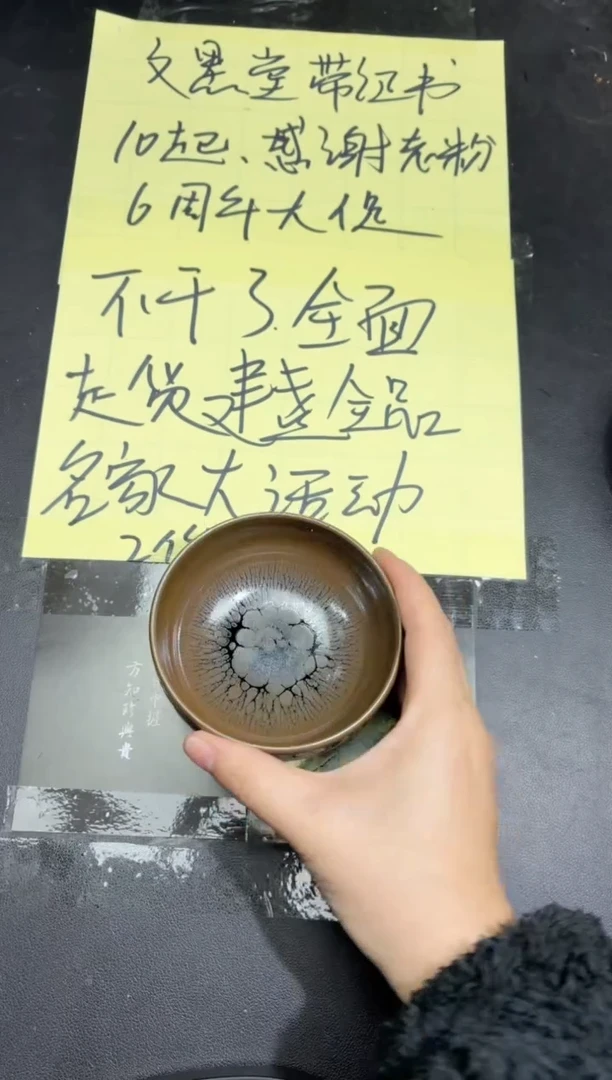 文墨堂带证书
10起、感谢老粉
6周年大促
不干了.全面
走货建盏全品
名家大活动
方知珍与贵